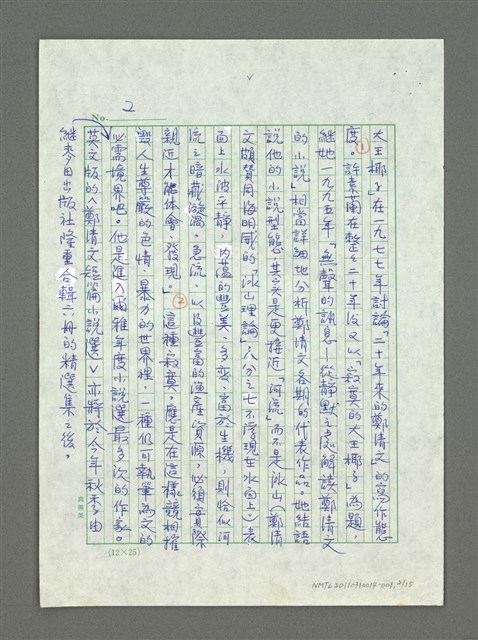 No. 2
大王椰子」在一九七七年討論「二十年來的鄭清文」的寫作態
度。①許素蘭在整整二十年後又以「寂寞的大王椰子」為題，
繼她一九九五年「無聲的訊息—從靜默之處解讀鄭清文
的小說」相當詳細地分析鄭清文各期的代表作品。她結語
說他的小說型態，其實是更接近「河流」而不是冰山（鄭清
文頗贊同海明威的「冰山理論」八分之七不浮現在水面上）表
面上水波平靜，內蘊的豐美、多變、富於生機，則恰似河
流之暗藏漩渦、急流，以及豐富的漁產資源，必須實際
親近才能體會、發現。」②這種寂寞，應是在這樣競相摧
毀人生尊嚴的色情、暴力的世界裡，一種仍可執筆為文的
必需境界吧。他是進入爾雅年度小說選最多次的作家。
英文版的〈鄭清文短篇小說選〉亦將於今年秋季由
繼麥田出版社隆重合輯六冊的精選集之後，
(12×25)
NMTL20110310014-004, 2/15